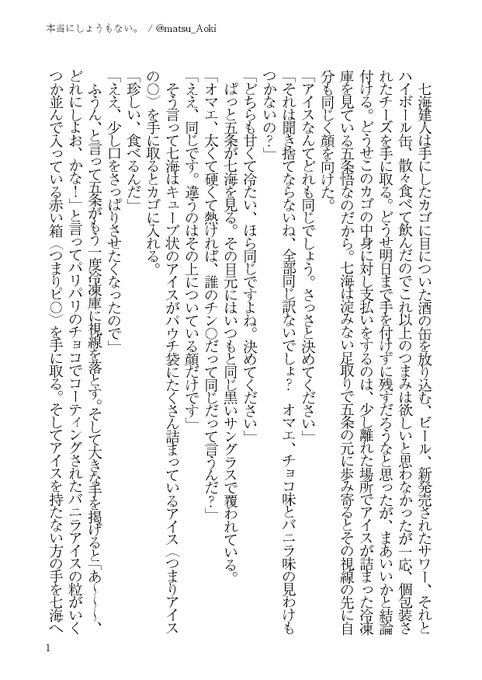 本当にしょうもない。 / @matsu_Aoki
　七海建人は手にしたカゴに目についた酒の缶を放り込む、ビール、新発売されたサワー、それと
ハイボール缶、散々食べて飲んだのでこれ以上のつまみは欲しいと思わなかったが一応、個包装さ
れたチーズを手に取る。どうせ明日まで手を付けずに残すだろうなと思ったが、まあいいかと結論
付ける。どうせこのカゴの中身に対し支払いをするのは、少し離れた場所でアイスが詰まった冷凍
庫を見ている五条悟なのだから。七海は淀みない足取りで五条の元に歩み寄るとその視線の先に自
分も同じく顔を向けた。
「アイスなんてどれも同じでしょう。さっさと決めてください」
「それは聞き捨てならないね、全部同じ訳ないでしょ？　オマエ、チョコ味とバニラ味の見わけも
つかないの？」
「どちらも甘くて冷たい、ほら同じですよね。決めてください」
　ぱっと五条が七海を見る。その目元にはいつもと同じ黒いサングラスで覆われている。
「オマエ、太くて硬くて熱ければ、誰のチン〇だって同じだって言うんだ？」
「ええ、同じです。違うのはその上についている顔だけです」
　そう言って七海はキューブ状のアイスがパウチ袋にたくさん詰まっているアイス（つまりアイス
の〇）を手に取るとカゴに入れる。
「珍しい、食べるんだ」
「ええ、少し口をさっぱりさせたくなったので」
　ふうん、と言って五条がもう一度冷凍庫に視線を落とす。そして大きな手を掲げると「あ～～～、
どれにしよお、かな！」と言ってパリパリのチョコでコーティングされたバニラアイスの粒がいく
つか並んで入っている赤い箱（つまりピ〇）を手に取る。そしてアイスを持たない方の手を七海へ
1